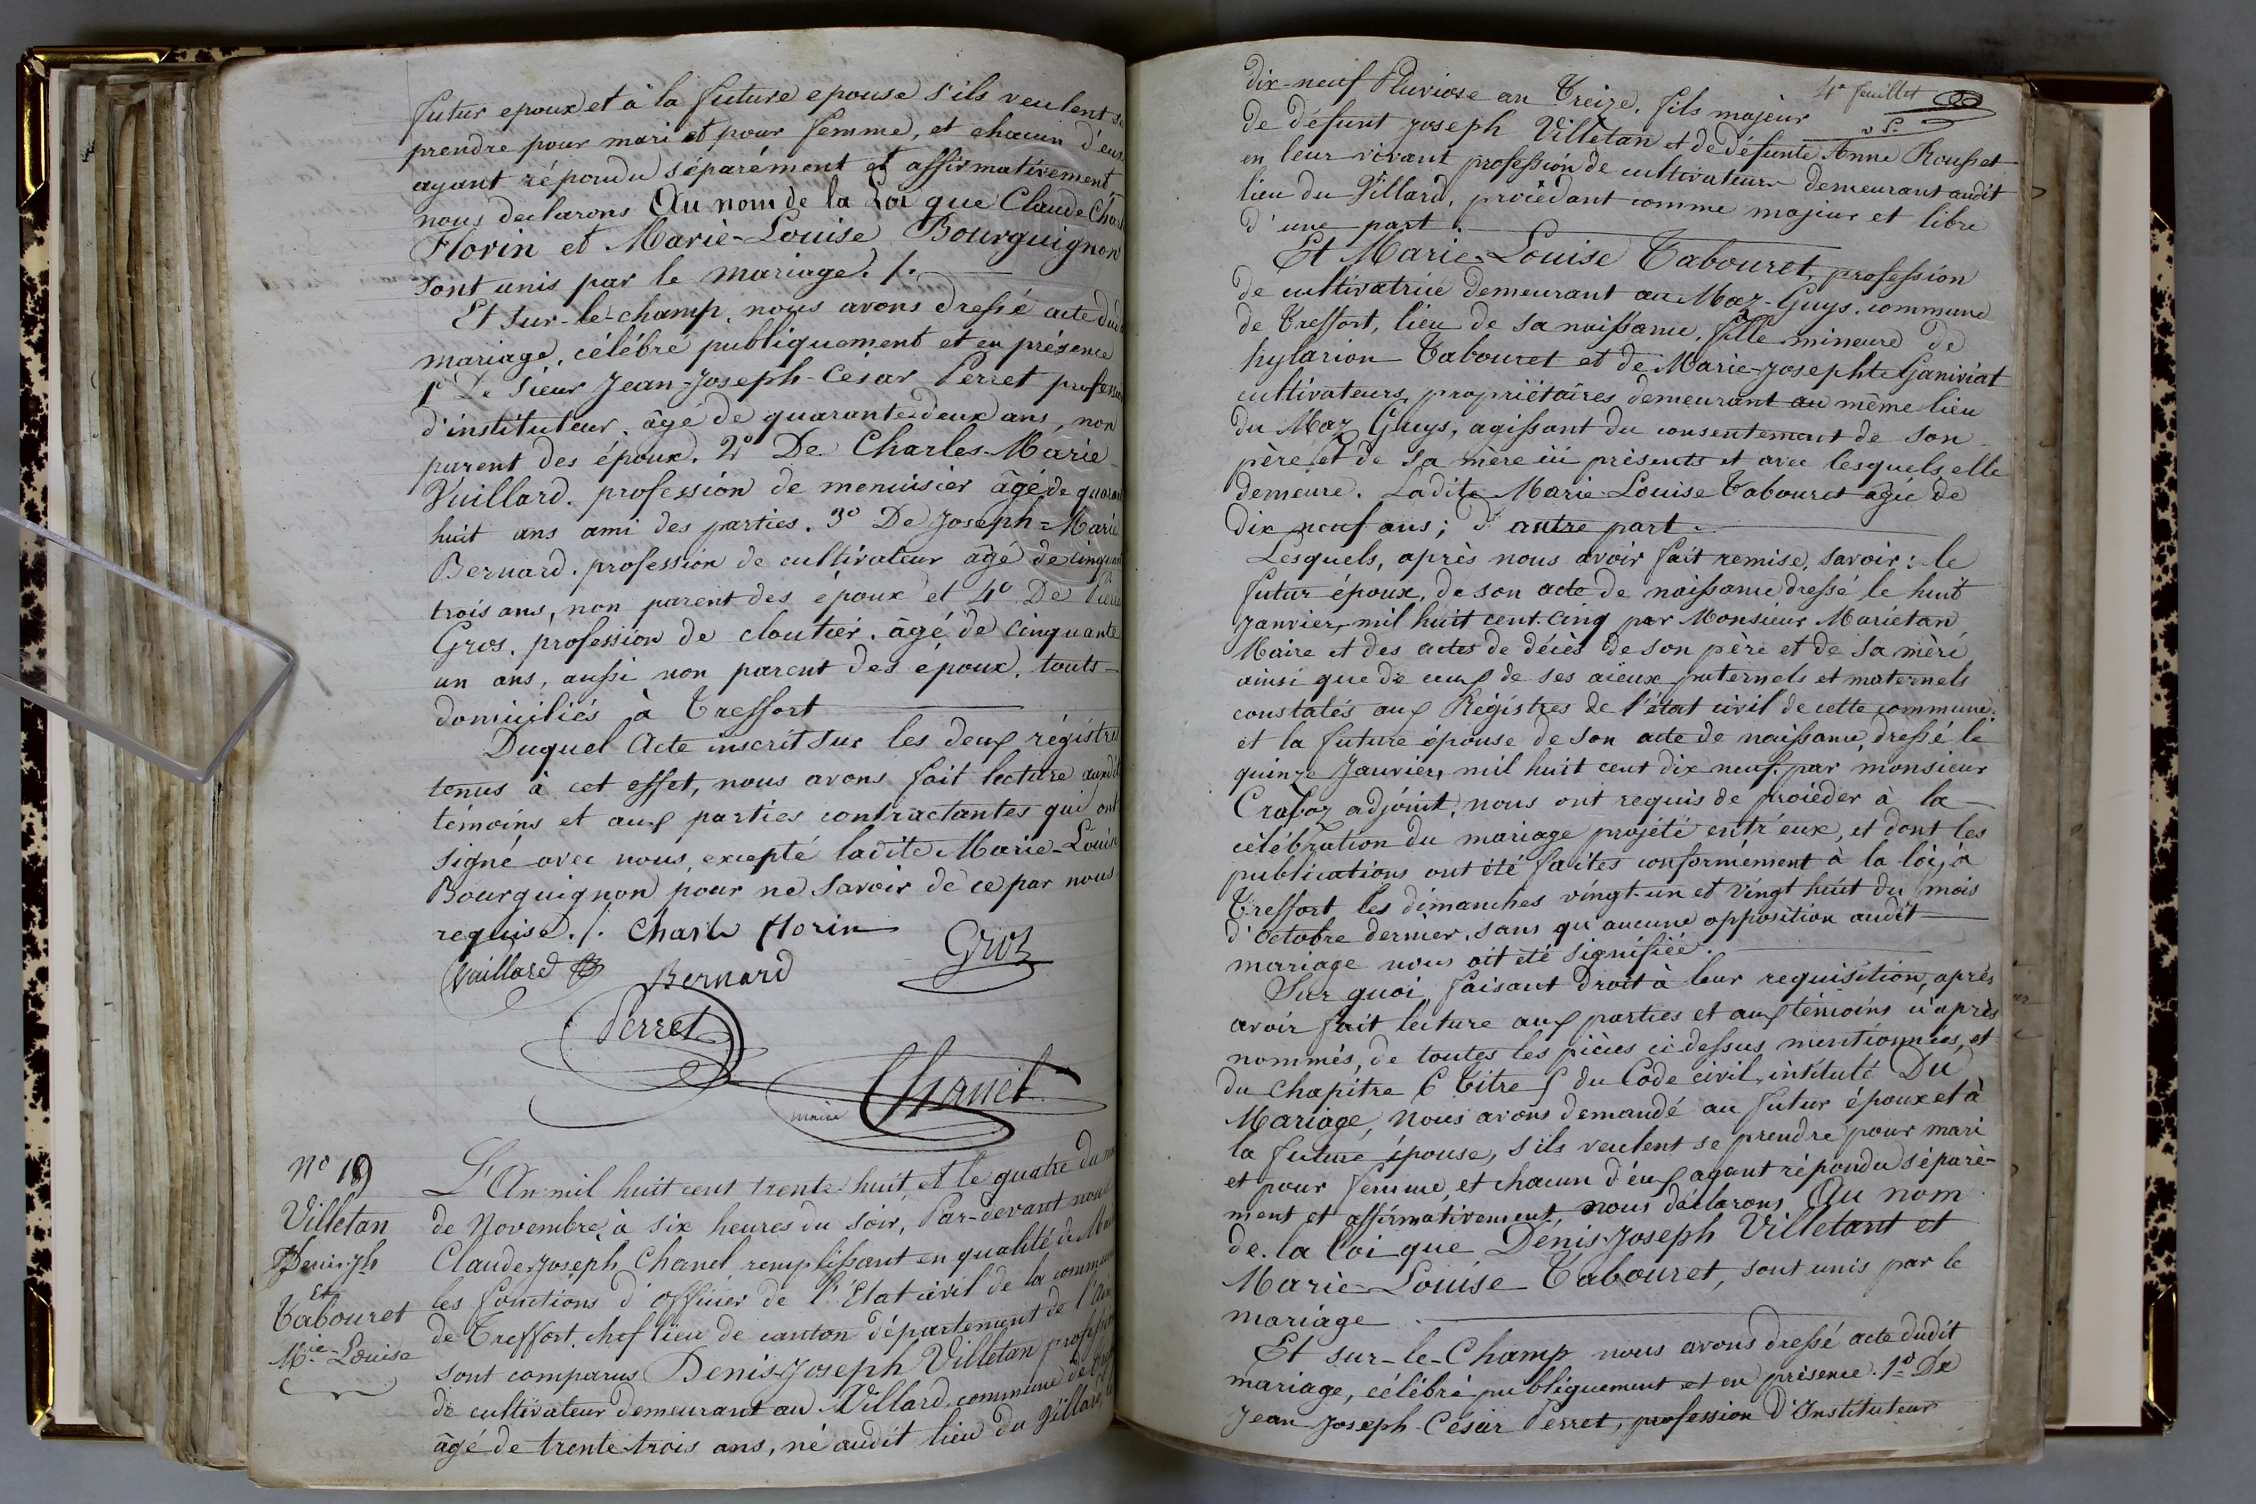 futur epoux et à la future epouse s'ils veulent se
prendre pour mari et pour femme, et chacun d'eux
ayant répondu séparément et affirmativement
nous declarons Au nom de la Loi que Claude Charl
Florin et Marie-Louise Bourguignon
sont unis par le mariage ./.
Et sur-le-champ, nous avons dressé acte dud
mariage, célébré publiquement et en présence
1° De Sieur Jean-Joseph-César Perret profession
d'instituteur, âgé de quarante-deux ans, non
parent des époux. 2° De Charles-Marie
Vuillard. profession de menuisier âgé de quaran
huit ans ami des parties. 3° De Joseph=Marie
Bernard. profession de cultivateur âgé de cinquan
trois ans, non parent des époux et 4° De Pierre
Gros. profession de cloutier. âgé de cinquante
un ans, aussi non parent des époux. touts
domiciliés à Treffort
Duquel Acte inscrit sur les deux régistres
tenus à cet effet, nous avons fait lecture auxdit
témoins et aux parties contractantes qui ont
signé avec nous, excepté ladite Marie-Louise
Bourguignon pour ne savoir de ce par nous
requise ./. Charle Florin
Groz
Vuillard Bernard
Perret
maire Chanel
N° 19
Villetan
Denis-Jph
et
Tabouret
Mie-Louise
L'An mil huit cent trente-huit et le quatre du m
de Novembre, à six heures du soir, Par-devant nous
Claude-Joseph Chanel remplissant en qualité de Mai
les fonctions d'officier de l'Etat civil de la commune
de Treffort, chef lieu de canton département de l'Ain
sont comparus Denis-Joseph Villetan profession
de cultivateur demeurant au Villard commune de Tref
âgé de trente-trois ans, né audit lieu du Villard, le
4e feuillet
dix-neuf Pluviose an Treize, fils majeur
de défunt Joseph Villetan et de défunte Anne Rousset
en leur vivant profession de cultivateurs demeurant audit
lieu du Villard, procédant comme majeur et libre
d'une part.
Et Marie-Louise Tabouret, profession
de cultivatrice demeurant au Maz-Guys, commune
de Treffort, lieu de sa naissance, fille mineure de
hylarion Tabouret et de Marie-Josephte Ganiviat
cultivateurs, propriétaires demeurant au même lieu
du Maz Guys, agissant du consentement de son
père et de sa mère ici présents et avec lesquels elle
demeure. Ladite Marie-Louise Tabouret âgée de
dix neuf ans; d'autre part.
Lesquels, après nous avoir fait remise, savoir: le
futur époux, de son acte de naissance dressé le huit
Janvier, mil huit cent cinq par Monsieur Mariétan
Maire et des actes de décès de son père et de sa mère
ainsi que de ceux de ses aïeux paternels et maternels
constatés aux Régistres de l'état civil de cette commune;
et la future épouse de son acte de naissance, dressé le
quinze Janvier, mil huit cent dix neuf, par monsieur
adjoint, nous ont requis de procéder à la
célébration du mariage projété entr'eux, et dont les
publications ont été faites conformément à la loi, à
Treffort les dimanches vingt-un et vingt huit du mois
d'octobre dernier, sans qu'aucune opposition audit
mariage nous ait été signifiée.
Sur quoi, faisant droit à leur requisition, après
avoir fait lecture aux parties et aux témoins ci après
nommés, de toutes les pièces ci dessus mentionnées, et
du chapitre 6 titre 5 du Code civil, intitulé Du
Mariage, Nous avons demandé au futur époux et à
la future épouse, s'ils veulent se prendre pour mari
et pour femme, et chacun d'eux ayant répondu séparé-
ment et affirmativement, nous déclarons Au nom
de la Loi que Denis-Joseph Villetant et
Marie-Louise Tabouret, sont unis par le
mariage.
Et sur-le-Champ nous avons dressé acte dudit
mariage, célébré publiquement et en présence. 1° De
Jean Joseph-César Perret, profession d'Instituteur